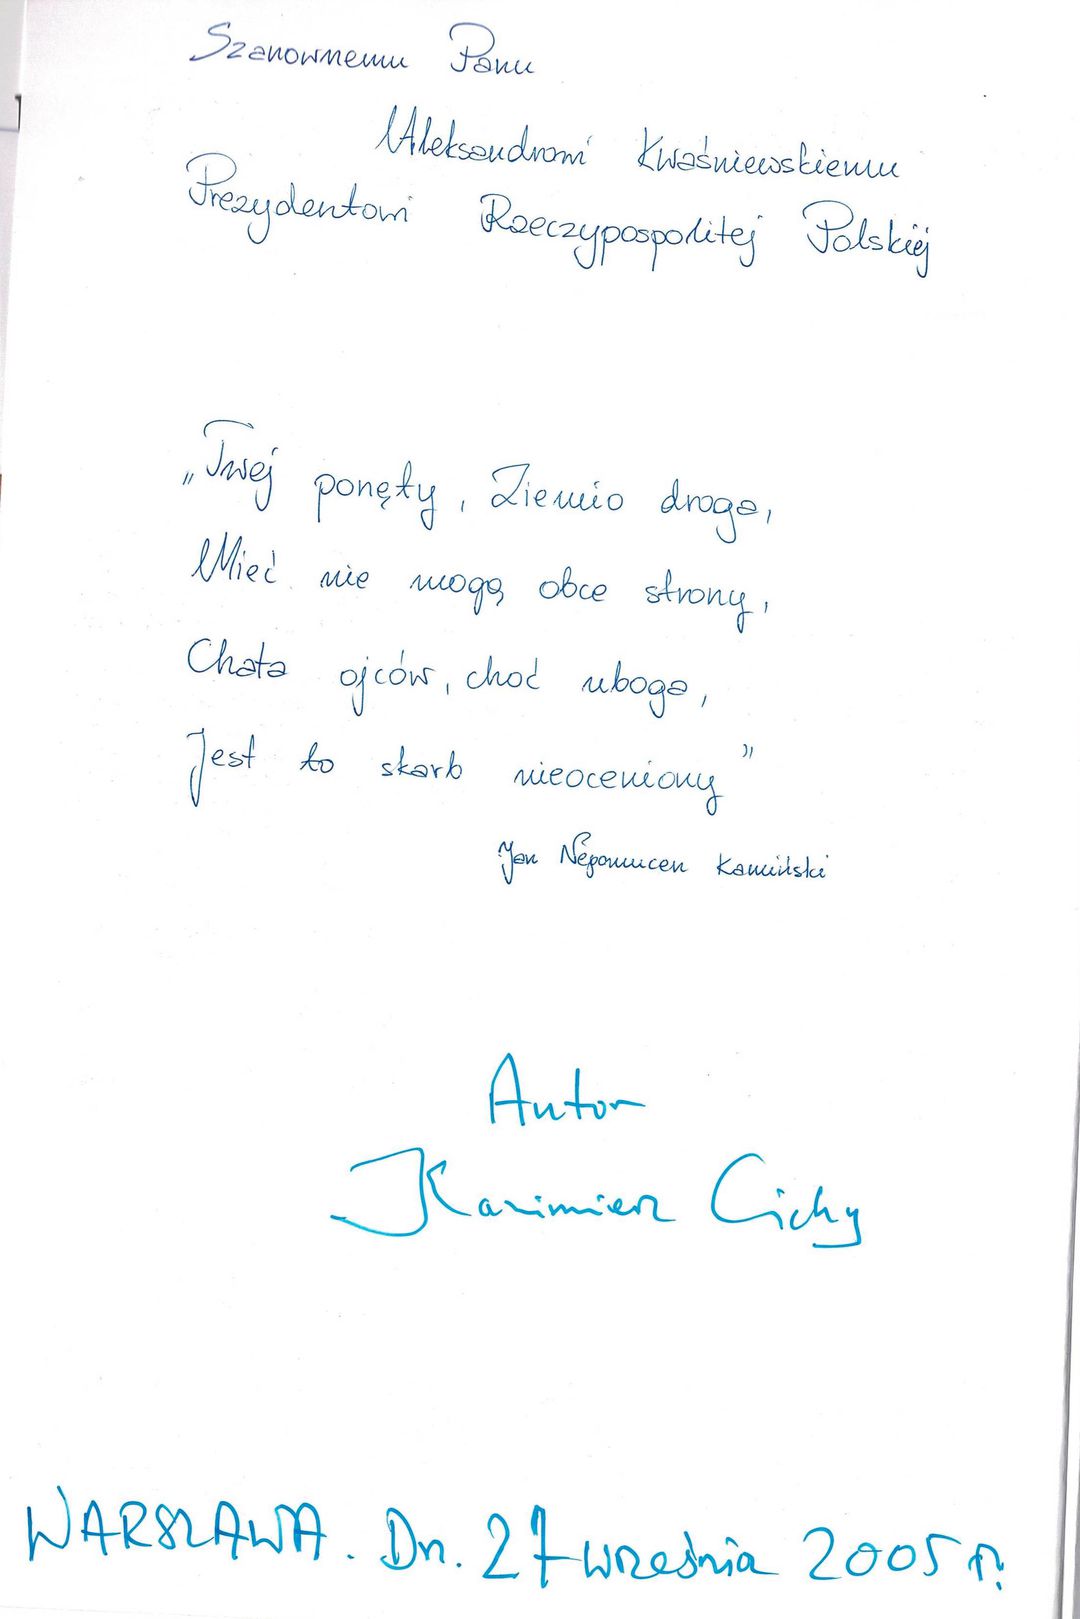 Szanownemu Panu
Aleksandrowi Kwaśniewskiemu
Prezydentowi Rzeczypospolitej Polskiej
„Twej ponęty, Ziemio droga,
Mieć nie mogą obce strony,
Chata ojców, choć uboga,
Jest to skarb nieoceniony”
Jan Nepomucen Kamiński
Autor
Kazimierz Cichy
WARSZAWA. Dn. 27 września 2005 r.